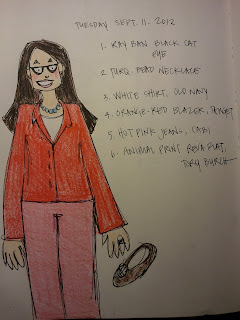 TUESDAY SEPT. 11. 2012
1. RAY BAN BLACK CAT
EYE
2. TURQ. BEAD NECKLACE
3. WHITE SHIRT, OLD NAVY
4. ORANGE-RED BLAZER, TARGET
5. HOT PINK JEANS, CABI
6. ANIMAL PRINT REVA FLAT,
TORY BURCH